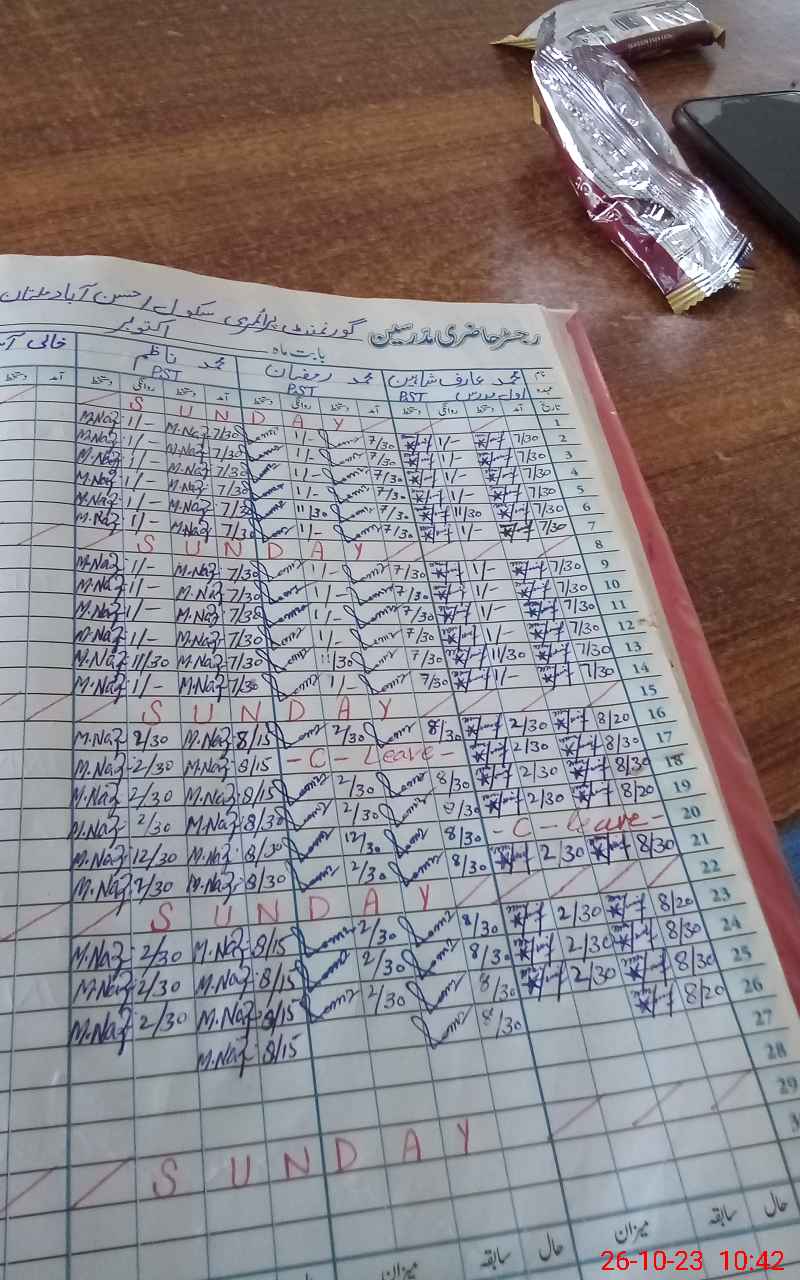 رجسٹر حاضری مدرسین گورنمنٹ پرائمری سکول احسن آباد ملتان
بابت ماہ اکتوبر
نام محمد عارف شاہین محمد رمضان محمد ناظم خالی
عہدہ PST PST PST
تاریخ آمد دستخط روانگی دستخط آمد دستخط روانگی دستخط آمد دستخط روانگی دستخط آمد دستخط
1 SUNDAY
2 7/30 1/- 7/30 1/- 7/30 M.Naz 1/- M.Naz
3 7/30 1/- 7/30 1/- 7/30 M.Naz 1/- M.Naz
4 7/30 1/- 7/30 1/- 7/30 M.Naz 1/- M.Naz
5 7/30 1/- 7/30 1/- 7/30 M.Naz 1/- M.Naz
6 7/30 11/30 7/30 11/30 7/30 M.Naz 1/- M.Naz
7 7/30 1/- 7/30 1/- 7/30 M.Naz 1/- M.Naz
8 SUNDAY
9 7/30 1/- 7/30 1/- 7/30 M.Naz 1/- M.Naz
10 7/30 1/- 7/30 1/- 7/30 M.Naz 1/- M.Naz
11 7/30 1/- 7/30 1/- 7/30 M.Naz 1/- M.Naz
12 7/30 1/- 7/30 1/- 7/30 M.Naz 1/- M.Naz
13 7/30 11/30 7/30 11/30 7/30 M.Naz 11/30 M.Naz
14 7/30 1/- 7/30 1/- 7/30 M.Naz 1/- M.Naz
15 SUNDAY
16 8/20 2/30 8/30 2/30 8/15 M.Naz 2/30 M.Naz
17 8/30 2/30 -C- Leave- 8/15 M.Naz 2/30 M.Naz
18 8/30 2/30 8/30 2/30 8/15 M.Naz 2/30 M.Naz
19 8/20 2/30 8/30 2/30 8/30 M.Naz 2/30 M.Naz
20 -C-leave- 8/30 12/30 8/30 M.Naz 12/30 M.Naz
21 8/30 2/30 8/30 2/30 8/30 M.Naz 2/30 M.Naz
22 SUNDAY
23 8/20 2/30 8/30 2/30 8/15 M.Naz 2/30 M.Naz
24 8/30 2/30 8/30 2/30 8/15 M.Naz 2/30 M.Naz
25 8/30 2/30 8/30 2/30 8/15 M.Naz 2/30 M.Naz
26 8/20 8/30 8/15 M.Naz
27
28
29 SUNDAY
حال سابقہ میزان حال سابقہ میزان
26-10-23 10:42